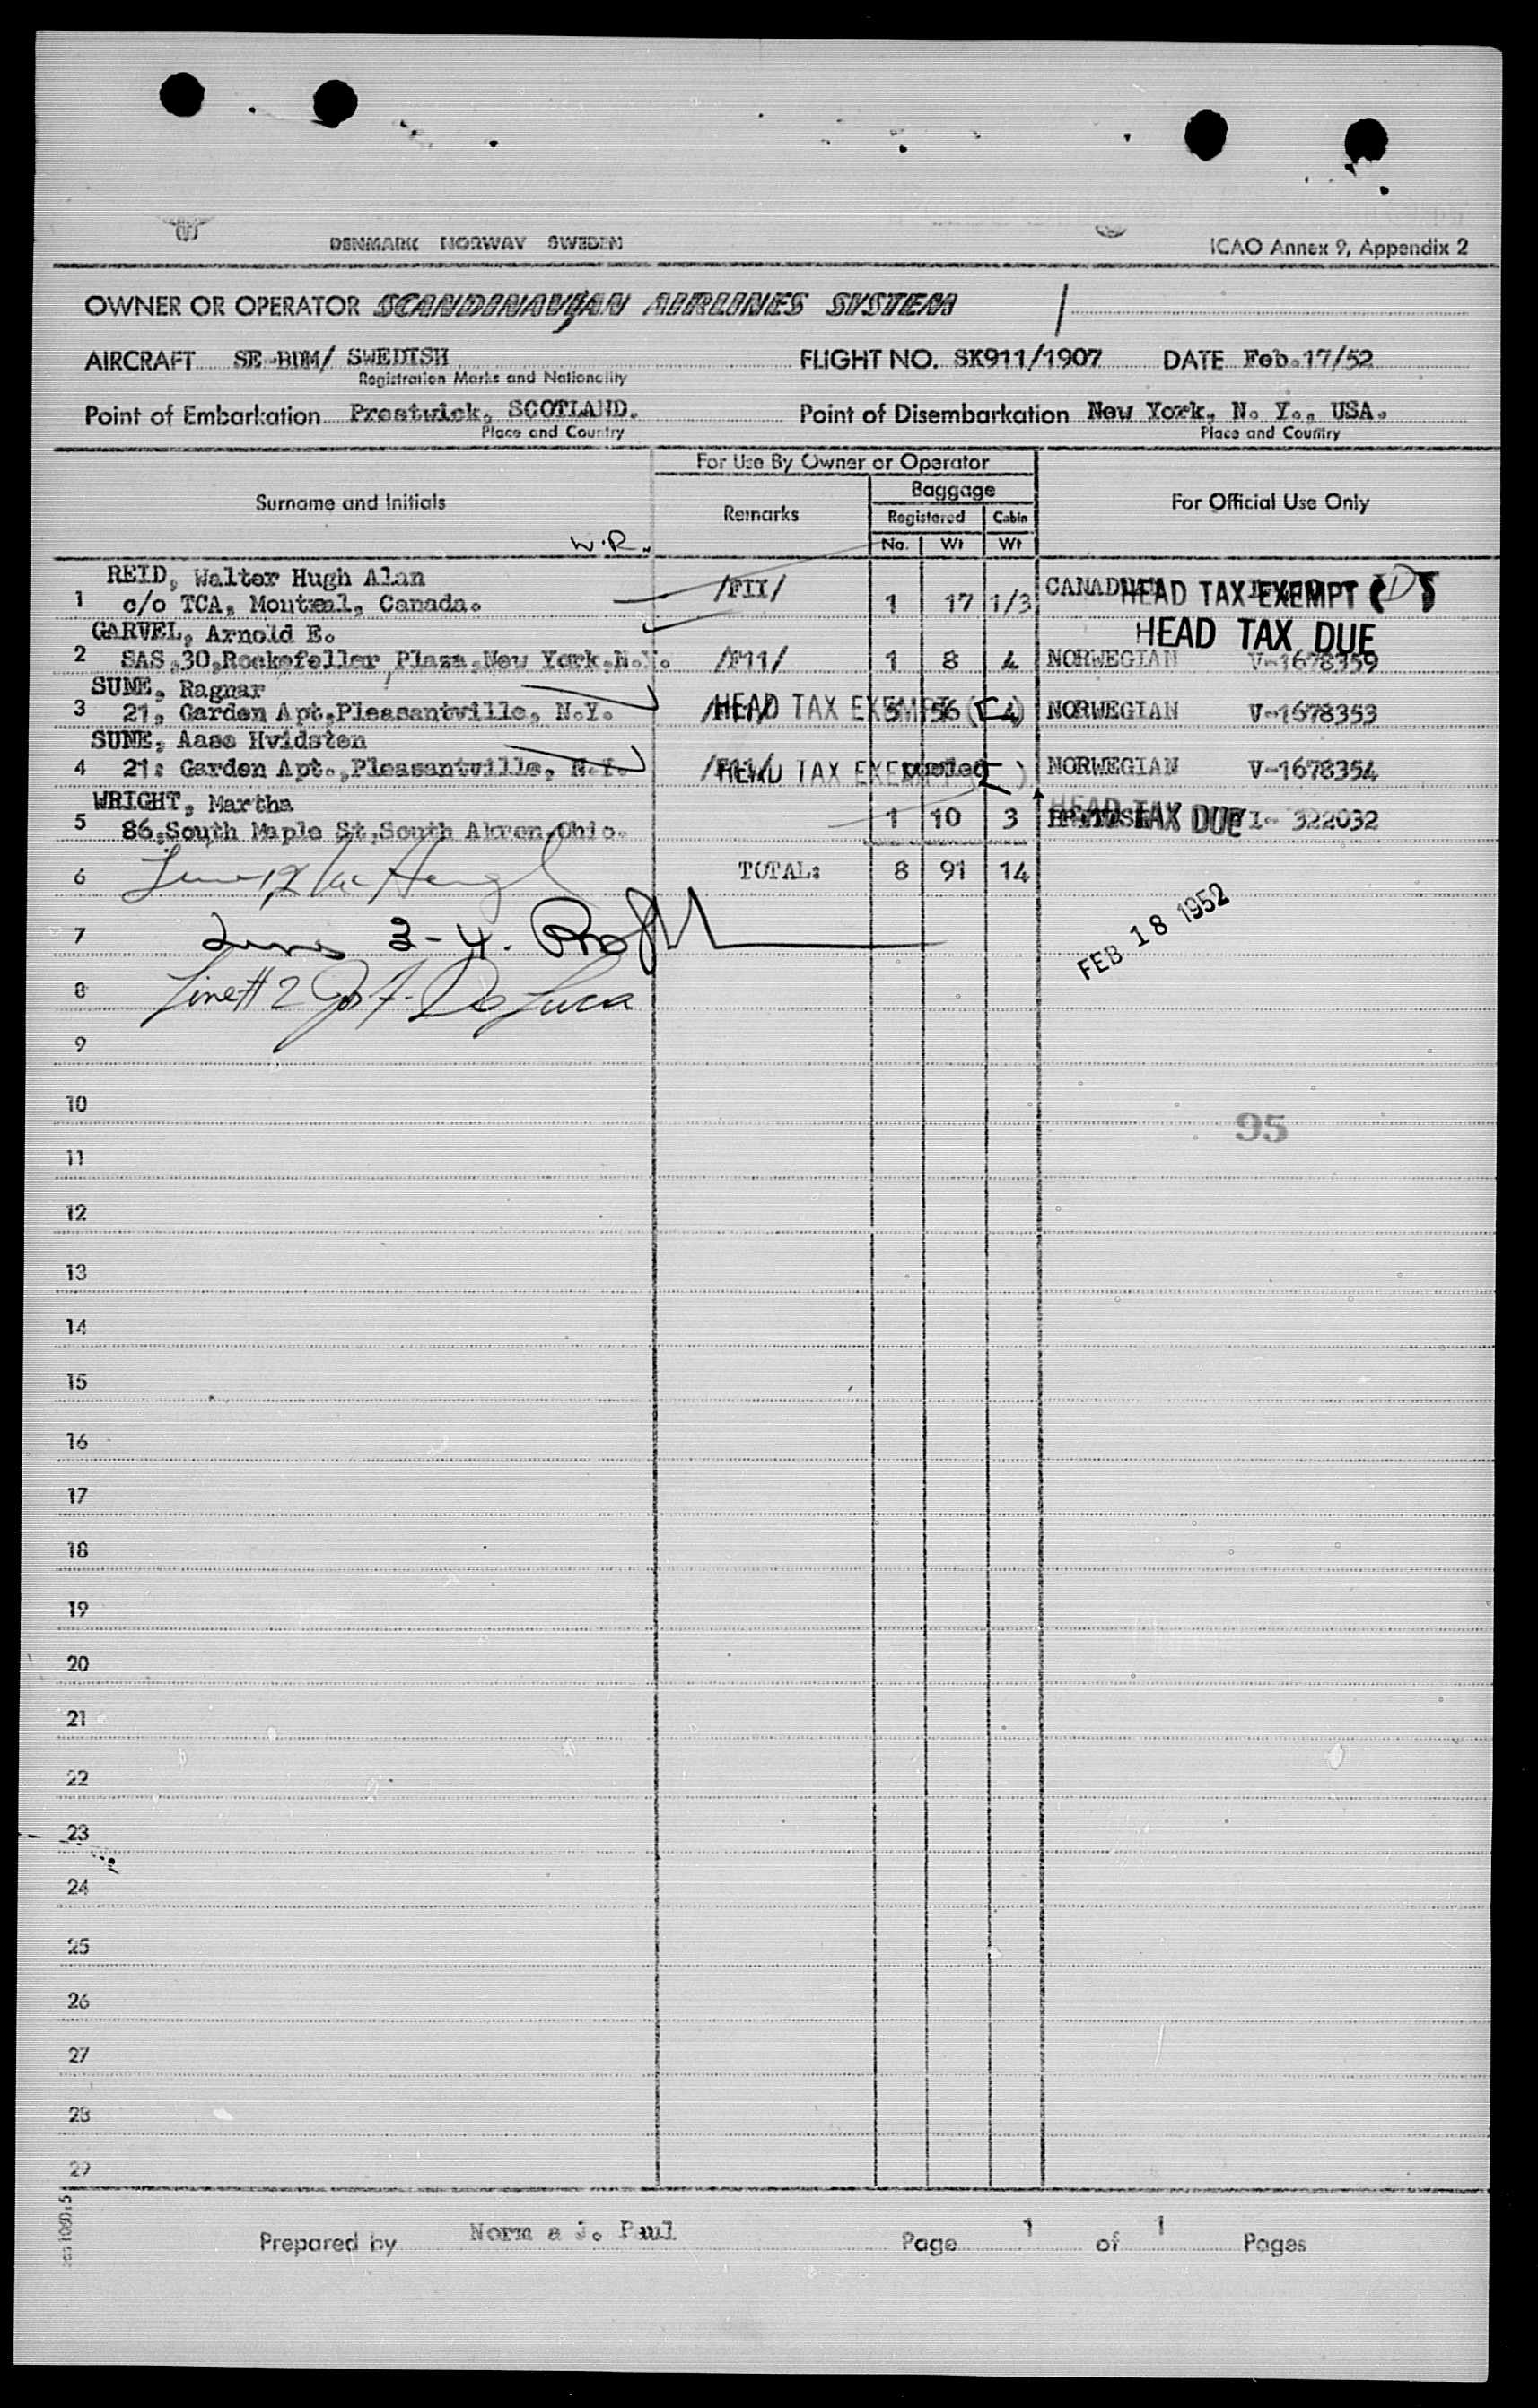 DENMARK NORWAY SWEDEN
ICAO Annex 9, Appendix 2
OWNER OR OPERATOR SCANDINAVIAN AIRLINES SYSTEM
AIRCRAFT SE-BDM/ SWEDISH FLIGHT NO. SK911/1907 DATE Feb.17/52
Registration Marks and Nationality
Point of Embarkation Prestwick, SCOTLAND. Point of Disembarkation New York, N. Y., USA.
Place and Country Place and Country
For Use By Owner or Operator
Surname and Initials Remarks Baggage For Official Use Only
Registered Cabin
W.R. No. Wt Wt
REID, Walter Hugh Alan
1 c/o TCA, Montreal, Canada. /FII/ 1 17 1/3 CANADIAN HEAD TAX EXEMPT
GARVEL, Arnold E. HEAD TAX DUE
2 SAS,30,Rockefeller Plaza,New York.N.Y. /F11/ 1 8 4 NORWEGIAN V-1678359
SUNE, Ragnar
3 21, Garden Apt.Pleasantville, N.Y. HEAD TAX EXEMPT 5 56 4 NORWEGIAN V-1678353
SUNE, Aase Hvidsten
4 21: Garden Apt.,Pleasantville, N.Y. HEAD TAX EXEMPT pooled NORWEGIAN V-1678354
WRIGHT, Martha
5 86,South Maple St,South Akron,Ohio. 1 10 3 BRITISH HEAD TAX DUE I- 322032
6 TOTAL: 8 91 14
7 Lines 3-4.
FEB 18 1952
8 Line #2 Jos F. De Luca
9
10
95
11
12
13
14
15
16
17
18
19
20
21
22
23
24
25
26
27
28
29
Prepared by Norm a J. Paul Page 1 of 1 Pages